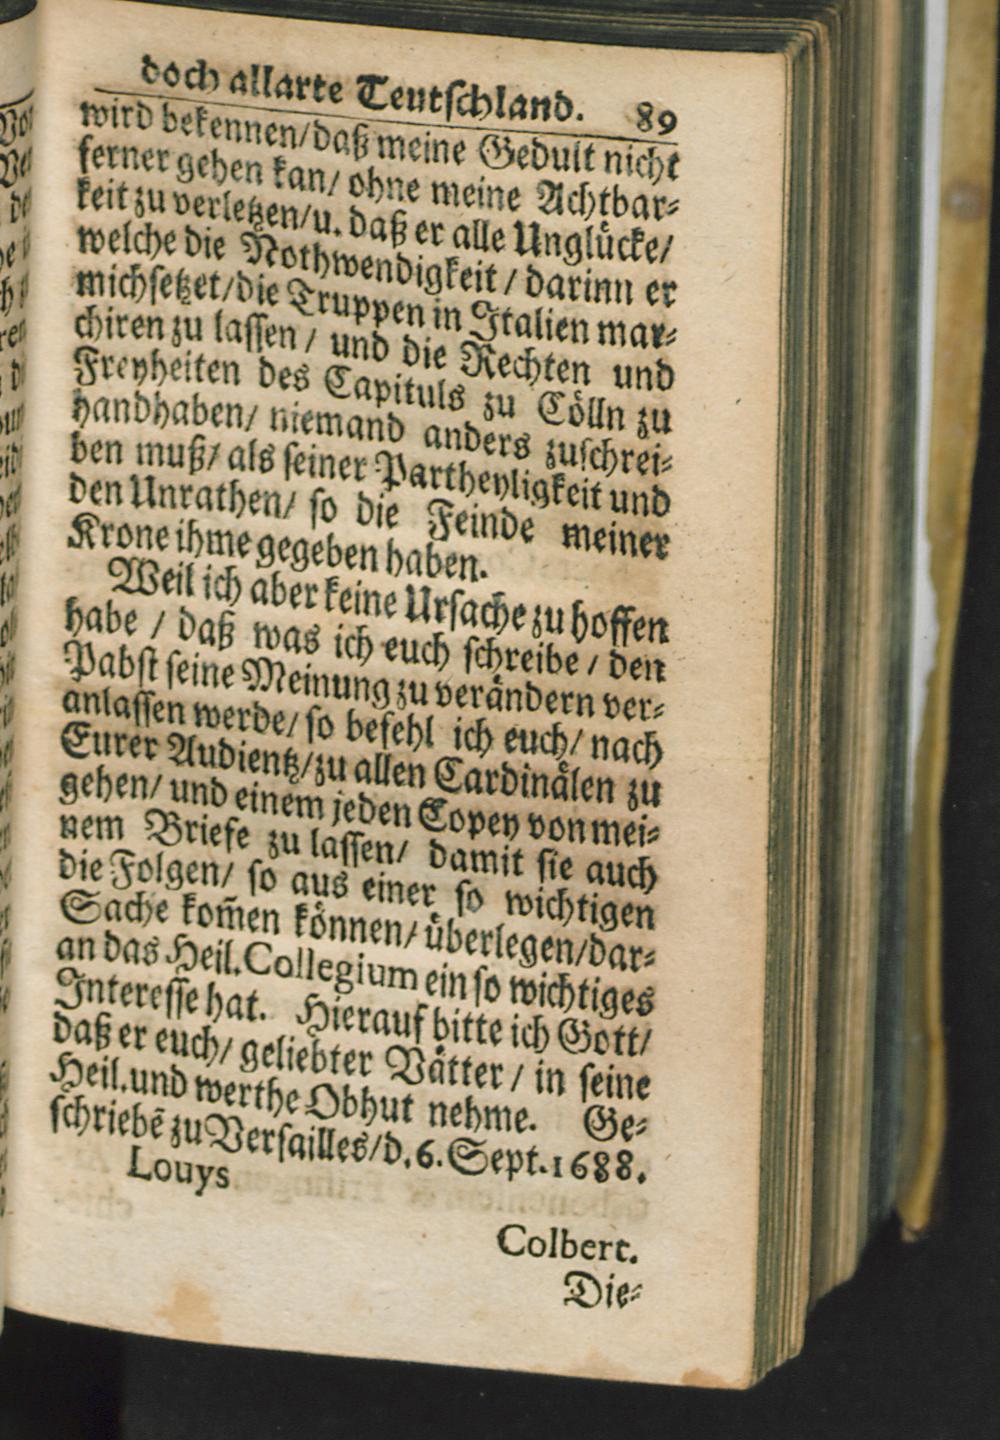 doch allarte Teutschland. 89
wird bekennen/daß meine Gedult nicht
ferner gehen kan/ ohne meine Achtbar-
keit zu verletzen/u. daß er alle Unglücke/
welche die Nothwendigkeit / darinn er
mich setzet/die Truppen in Italien mar-
chiren zu lassen / und die Rechten und
Freyheiten des Capituls zu Cölln zu
handhaben/ niemand anders zuschrei-
ben muß/ als seiner Partheyligkeit und
den Unrathen/ so die Feinde meiner
Krone ihme gegeben haben.
Weil ich aber keine Ursache zu hoffen
habe / daß was ich euch schreibe / den
Pabst seine Meinung zu verändern ver-
anlassen werde/ so befehl ich euch/ nach
Eurer Audientz/zu allen Cardinälen zu
gehen/ und einem jeden Copey von mei-
nem Briefe zu lassen/ damit sie auch
die Folgen/ so aus einer so wichtigen
Sache kom̃en können/ überlegen/dar-
an das Heil. Collegium ein so wichtiges
Interesse hat. Hierauf bitte ich Gott/
daß er euch/ geliebter Vätter / in seine
Heil. und werthe Obhut nehme. Ge-
schriebẽ zu Versailles/d. 6. Sept. 1688.
Louys
Colbert.
Die-